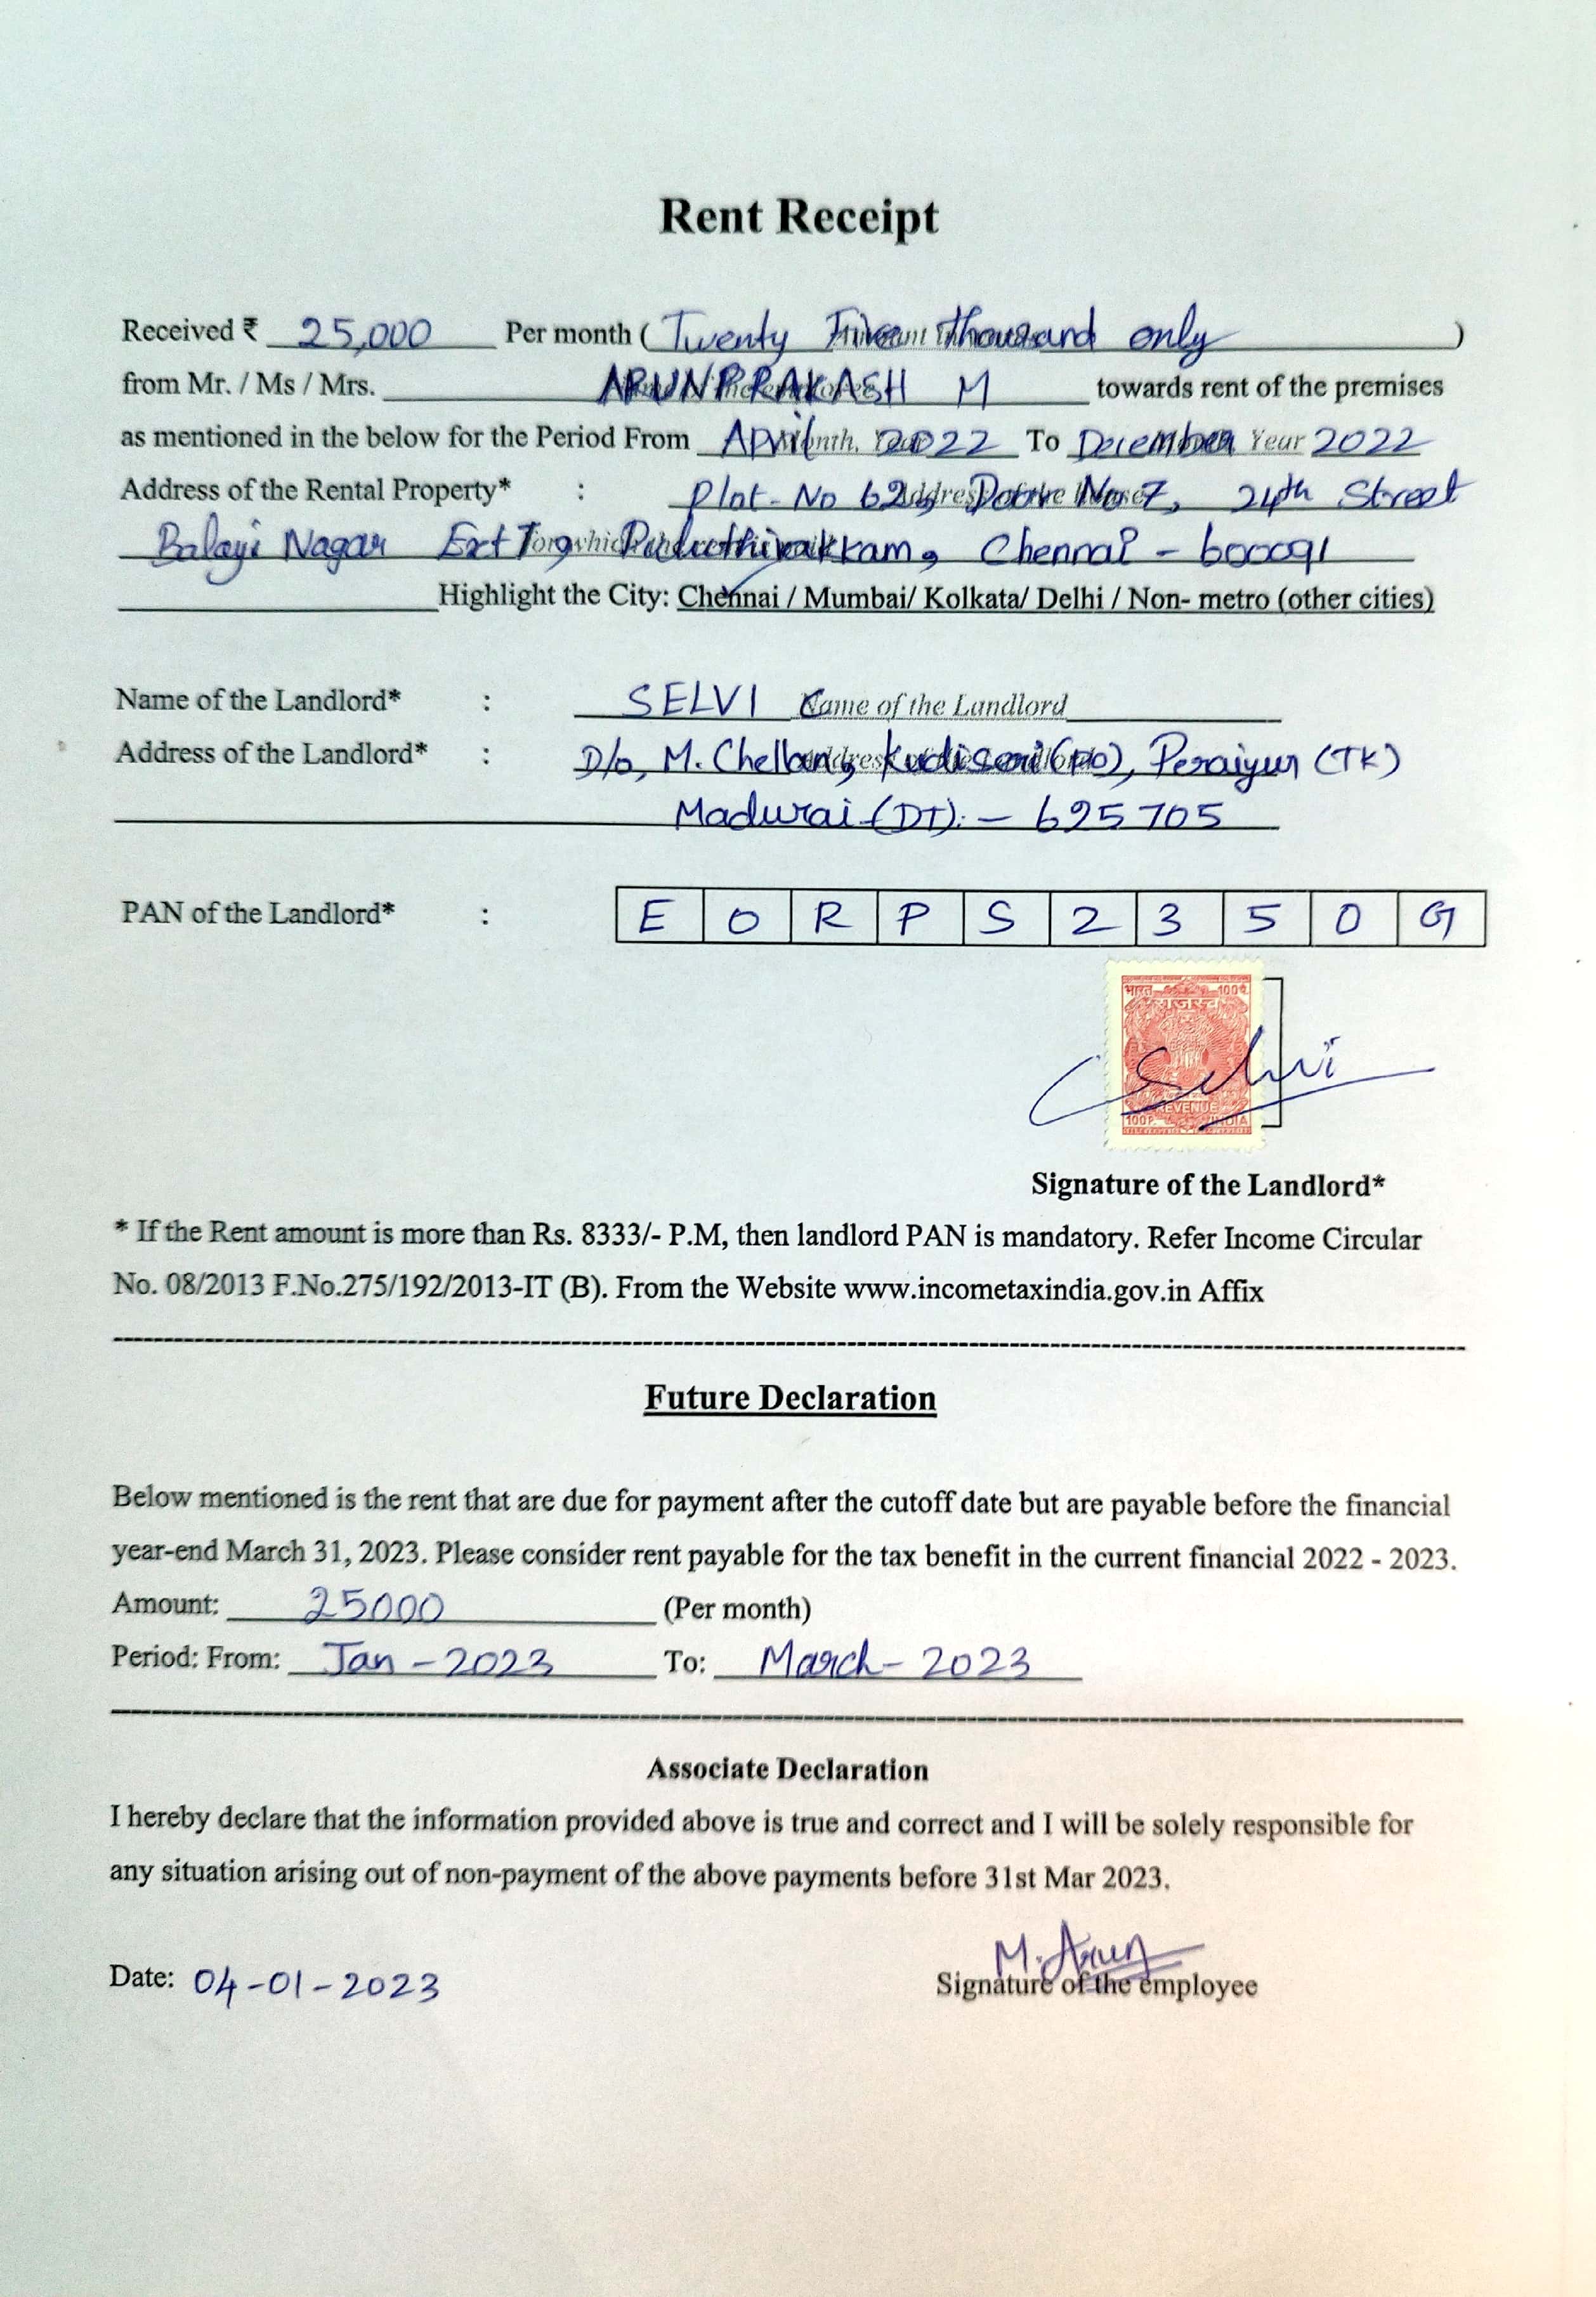 Rent Receipt
Received ₹ 25,000 Per month ( Twenty Five thousand only )
from Mr. / Ms / Mrs. ARUNPRAKASH M towards rent of the premises
as mentioned in the below for the Period From April 2022 To December Year 2022
Address of the Rental Property* : Plot-No 62, Door No 7, 24th Street
Balaji Nagar Ext, Puluthivakkam, Chennai - 600091
Highlight the City: Chennai / Mumbai/ Kolkata/ Delhi / Non- metro (other cities)
Name of the Landlord* : SELVI C Name of the Landlord
Address of the Landlord* : D/o, M. Chellan, Kudiseri (PO), Peraiyur (TK)
Madurai (DT). - 625705
PAN of the Landlord* : E O R P S 2 3 5 0 G
भारत 100प.
राजस्व
Selvi
REVENUE
100P. INDIA
Signature of the Landlord*
* If the Rent amount is more than Rs. 8333/- P.M, then landlord PAN is mandatory. Refer Income Circular
No. 08/2013 F.No.275/192/2013-IT (B). From the Website www.incometaxindia.gov.in Affix
Future Declaration
Below mentioned is the rent that are due for payment after the cutoff date but are payable before the financial
year-end March 31, 2023. Please consider rent payable for the tax benefit in the current financial 2022 - 2023.
Amount: 25000 (Per month)
Period: From: Jan - 2023 To: March - 2023
Associate Declaration
I hereby declare that the information provided above is true and correct and I will be solely responsible for
any situation arising out of non-payment of the above payments before 31st Mar 2023.
M. Arun
Date: 04-01-2023 Signature of the employee